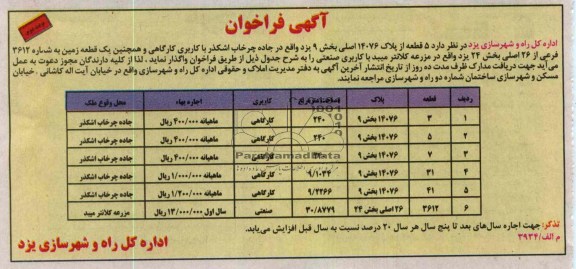 آگهی فراخوان
اداره کل راه و شهرسازی یزد در نظر دارد ۵ قطعه از پلاک ۱۴۰۷۶ اصلی بخش ۹ یزد واقع در جاده چرخاب اشکذر با کاربری کارگاهی و همچنین یک قطعه زمین به شماره ۳۶۱۲
فرعی از ۲۶ اصلی بخش ۲۴ یزد واقع در مزرعه کلانتر میبد با کاربری صنعتی را به شرح جدول ذیل از طریق فراخوان واگذار نماید . لذا از کلیه دارندگان مجوز دعوت به عمل
می آید جهت دریافت مدارک ظرف مدت ده روز از تاریخ انتشار آخرین آگهی به دفتر مدیریت املاک و حقوقی اداره کل راه و شهرسازی واقع در خیابان آیت اله کاشانی ، خیابان
مسکن و شهرسازی ساختمان شماره دو راه و شهرسازی مراجعه نمایند.
ردیف قطعه پلاک کاربری اجاره بهاء محل وقوع ملک
۱ ۳ ۱۴۰۷۶ بخش ۹ ۲۴۰ کارگاهی ماهیانه ۴۰۰/۰۰۰ ریال جاده چرخاب اشکذر
۲ ۵ ۱۴۰۷۶ بخش ۹ ۲۴۰ کارگاهی ماهیانه ۴۰۰/۰۰۰ ریال جاده چرخاب اشکذر
۳ ۷ ۱۴۰۷۶ بخش ۹ کارگاهی ماهیانه ۴۰۰/۰۰۰ ریال جاده چرخاب اشکذر
۴ ۳۱ ۱۴۰۷۶ بخش ۹ ۹/۱۰۳۴ کارگاهی ماهیانه ۱/۰۰۰/۰۰۰ ریال جاده چرخاب اشکذر
۵ ۴۱ ۱۴۰۷۶ بخش ۹ ۹/۲۲۶۶ کارگاهی ماهیانه ۱/۲۰۰/۰۰۰ ریال جاده چرخاب اشکذر
۶ ۳۶۱۲ ۲۶ اصلی بخش ۲۴ ۳۰/۸۷۷۹ صنعتی سال اول ۱۳/۰۰۰/۰۰۰ ریال مزرعه کلانتر میبد
تذکر: جهت اجاره سال‌های بعد تا پنج سال هر سال ۲۰ درصد نسبت به سال قبل افزایش می‌یابد.
م الف/۳۹۳۴
اداره کل راه و شهرسازی یزد